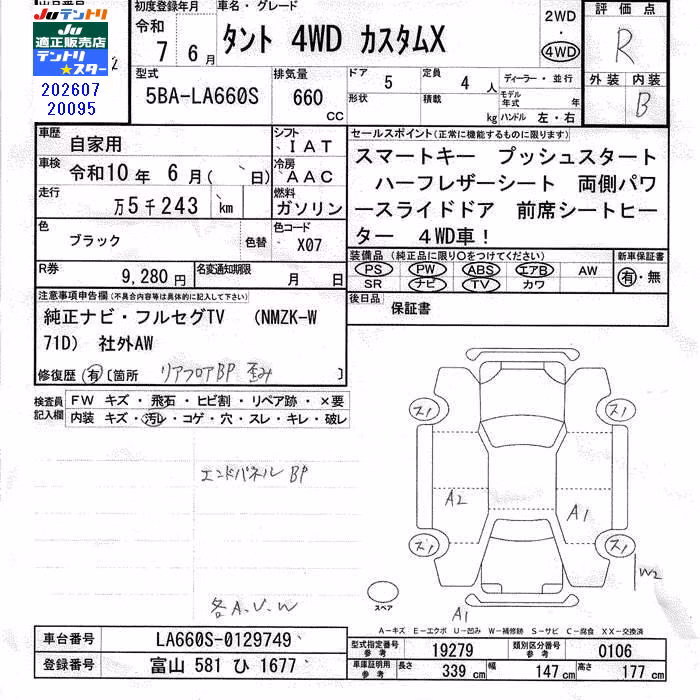 出品番号
JUテントリ
JU
適正販売店
テントリ
★スター
202607
20095
2
初度登録年月
令和
7 年 6 月
車名・グレード
タント 4WD カスタムX
2WD
・
4WD
評価点
R
外装 内装
B
型式
5BA-LA660S
排気量
660
CC
ドア
5
形状
定員
4 人
積載
kg
ディーラー・並行
モデル年式 年式
ハンドル 左・右
車歴
自家用
シフト
IAT
車検
令和10 年 6 月( 日)
冷房
AAC
走行
万5千243 km
燃料
ガソリン
色
ブラック
色替
色コード
X07
R券
9,280 円
名変通知期限
月 日
セールスポイント(正常に機能するものに限ります)
スマートキー プッシュスタート
ハーフレザーシート 両側パワ
ースライドドア 前席シートヒー
ター 4WD車!
装備品(純正品に限り○をつけてください)
PS PW ABS エアB AW
SR ナビ TV カワ
新車保証書
有・無
後日品
保証書
注意事項申告欄(不具合内容等は具体的に記入して下さい)
純正ナビ・フルセグTV (NMZK-W
71D) 社外AW
修復歴 有 〔箇所 リアフロアBP 歪み 〕
検査員
記入欄
FW キズ・飛石・ヒビ割・リペア跡・×要
内装 キズ・汚レ・コゲ・穴・スレ・キレ・破レ
エンドパネル BP
各A.U.W
ズ1
ズ1
A2
A1
ズ1
ズ1
W2
A1
スペア
A-キズ E-エクボ U-凹み W-補修跡 S-サビ C-腐食 XX-交換済
車台番号
LA660S-0129749
登録番号
富山 581 ひ 1677
型式指定番号
参考
19279
類別区分番号
参考
0106
車庫証明用
参考
長さ 339 cm 幅 147 cm 高さ 177 cm